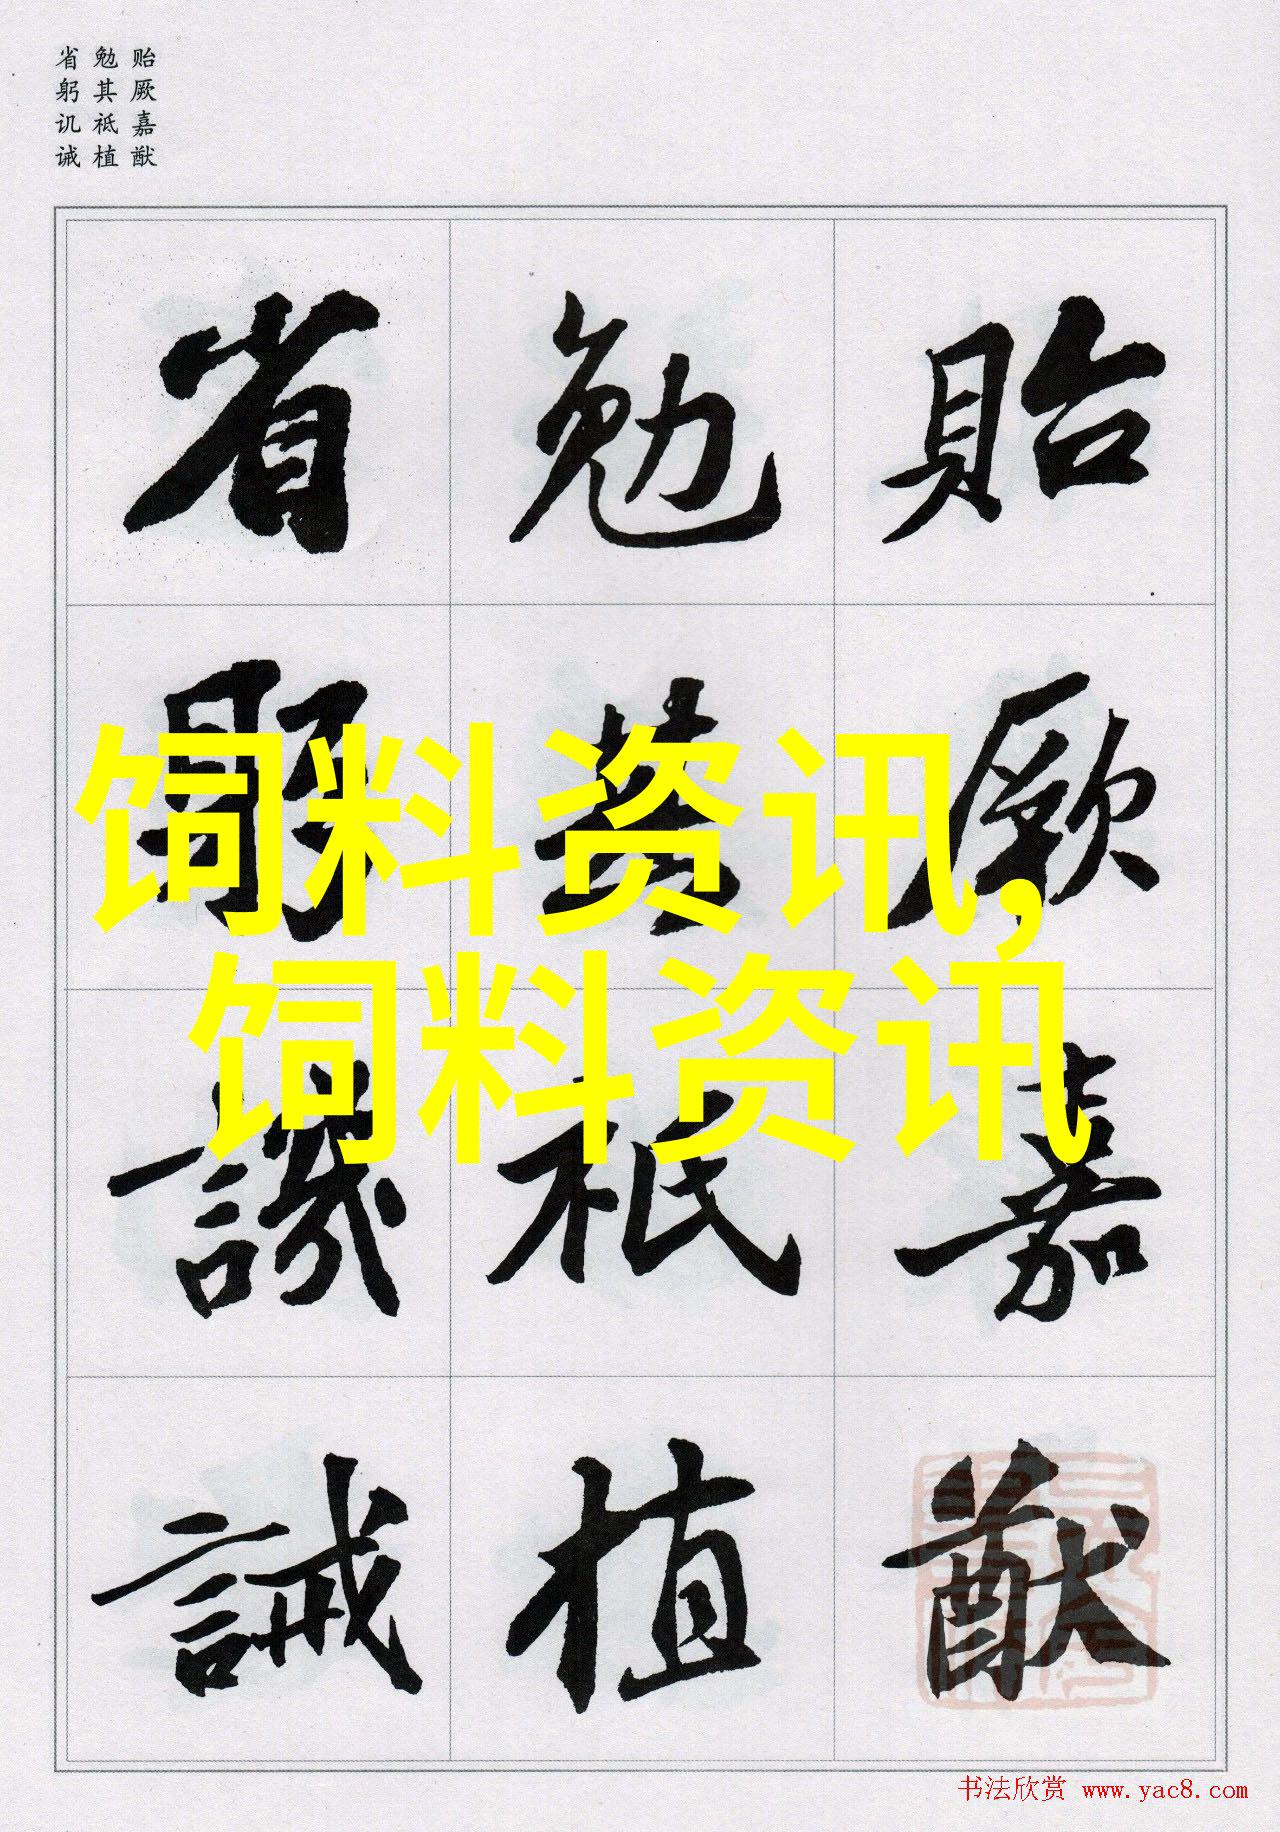 贻厥嘉猷
勉其祗植
省躬讥诫
貽厥嘉猷
勉其祗植
省躬譏誡
饲料资讯,
饲料资讯
书法欣赏 www.yac8.com